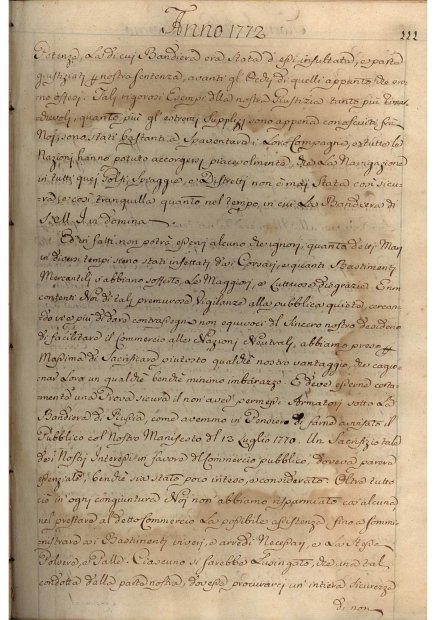 Anno 1772
111
Potenza, la di cui Bandiera era stata da essi insultata, e parte
giustiziati per nostra sentenza, avanti gl'occhj di quelli appunto che era-
no offesi. Talj rigorosi Esempi della nostra Giustizia tanto più
quanto più gl'estremi supplizj sono appena conosciuti fra
Noi, sono stati bastanti a spaventare i loro Compagni, e tutte le
Nazioni hanno potuto accorgersi piacevolmente, che la Navigazione
in tutti quei Golfi, Spiaggie, e Distretti non è mai stata così sicu-
ra, e così tranquilla quanto nel tempo, in cui la Bandiera di
S. M. I. vi domina.
Ed in fatti non potrà esservi alcuno che ignori, quanto detti Mari
in diversi tempi sieno stati infettati dai Corsari, e quanti Bastimenti
Mercantili abbiano sofferto le Maggiori, e luttuose disgrazie. Non
contenti Noi di talj premurosa vigilanza alla pubblica quiete, cercan-
do vie più di dare contrasegni non equivoci del sincero nostro desiderio
di facilitare il Commercio alle Nazioni Neutralj, abbiamo preso per
Massima di sacrificare piutosto qualche nostro vantaggio, che cagio-
nar loro un qualche benchè minimo imbarazzo. E deve esserne certa-
mente una prova sicura il non aver permessi Armatori sotto la
Bandiera di Russia, come avemmo in Pensiero di farne avvisato il
Pubblico col Nostro Manifesto del 13 Luglio 1770. Un Sacrifizio tale
dei Nostri Interessi in favore del Commercio pubblico, doveva parere
essenziale, benchè sia stato poco inteso, e considerato. Oltre tutto
ciò in ogni congiuntura Noi non abbiamo risparmiato cos'alcuna
nel prestare al detto Commercio la possibile assistenza fino a sommi-
nistrare ai Bastimenti viveri, e arredi Necessarj, e la stessa
Polvere, e Palle. Ciascuno si sarebbe lusingato, che una tal
condotta dalla parte nostra, dovesse procurarci un'intiera sicurezza
di non